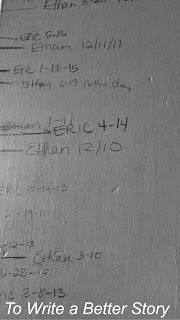 Ethan 8-20
ERIC 5-15
Ethan 12/11/11
ERIC 1-11-15
Ethan 6-19 Father's Day
Ethan 1-11
ERIC 4-14
Ethan 12/10
ERIC 10-14-13
6-19-11
-12-13
Ethan 3-10
6-25-10
ERIC 3-8-13
To Write a Better Story